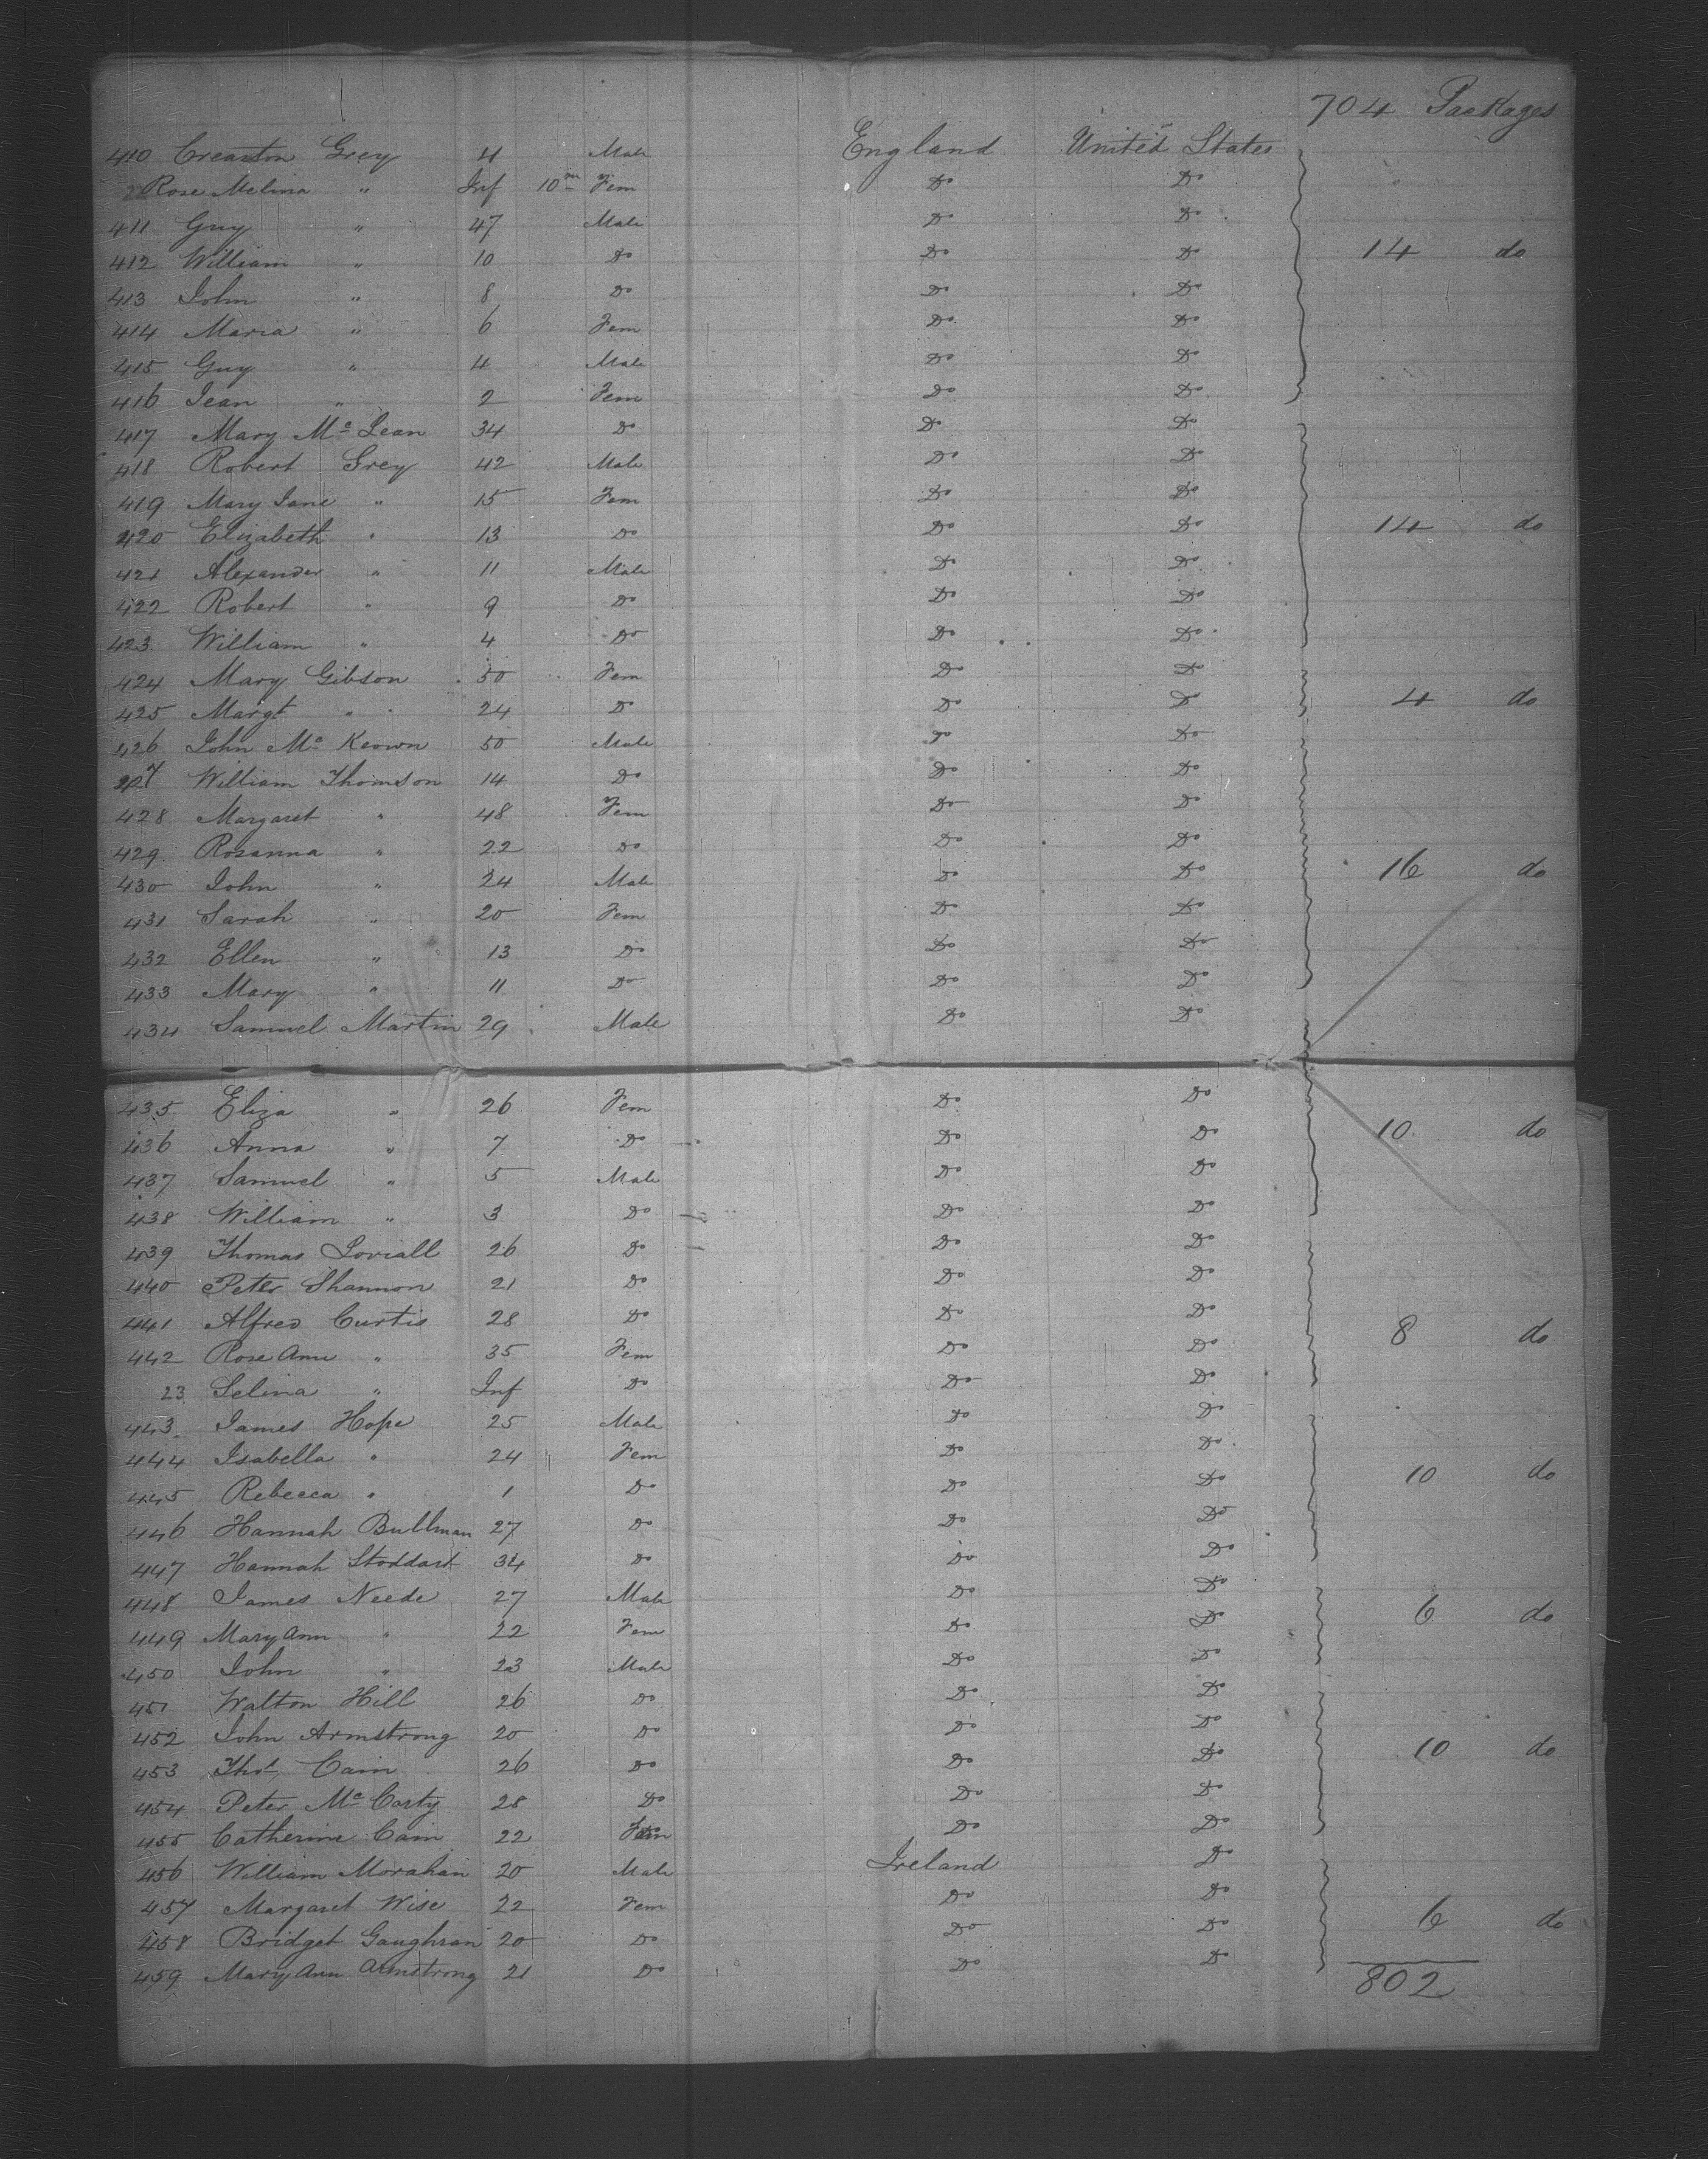 704 Packages
410 Creaston Grey 4 Male England United States
Rose Melina " Inf 10m Fem Do Do
411 Guy " 47 Male Do Do
412 William " 10 Do Do Do 14 do
413 John " 8 Do Do Do
414 Maria " 6 Fem Do Do
415 Guy " 4 Male Do Do
416 Jean " 2 Fem Do Do
417 Mary Mc Lean 34 Do Do Do
418 Robert Grey 42 Male Do Do
419 Mary Jane " 15 Fem Do Do
420 Elizabeth " 13 Do Do Do 14 do
421 Alexander " 11 Male Do Do
422 Robert " 9 Do Do Do
423 William " 4 Do Do Do
424 Mary Gibson 50 Fem Do Do
425 Margt " 24 Do Do Do 4 do
426 John Mc Keown 50 Male Do Do
427 William Thomson 14 Do Do Do
428 Margaret " 48 Fem Do Do
429 Rosanna " 22 Do Do Do
430 John " 24 Male Do Do 16 do
431 Sarah " 20 Fem Do Do
432 Ellen " 13 Do Do Do
433 Mary " 11 Do Do Do
434 Samuel Martin 29 Male Do Do
435 Eliza " 26 Fem Do Do
436 Anna " 7 Do Do Do 10 do
437 Samuel " 5 Male Do Do
438 William " 3 Do Do Do
439 Thomas Loviall 26 Do Do Do
440 Peter Shannon 21 Do Do Do
441 Alfred Curtis 28 Do Do Do 8 do
442 Rose Ann " 35 Fem Do Do
23 Selina " Inf Do Do Do
443 James Hope 25 Male Do Do
444 Isabella " 24 Fem Do Do
445 Rebecca " 1 Do Do Do 10 do
446 Hannah Bullman 27 Do Do Do
447 Hannah Stoddart 34 Do Do Do
448 James Neede 27 Male Do Do
449 Mary Ann " 22 Fem Do Do 6 do
450 John " 23 Male Do Do
451 Walton Hill 26 Do Do Do
452 John Armstrong 20 Do Do Do
453 Thos Cain 26 Do Do Do 10 do
454 Peter Mc Carty 28 Do Do Do
455 Catherine Cain 22 Fem Do Do
456 William Morahan 20 Male Ireland Do
457 Margaret Wise 22 Fem Do Do
458 Bridget Gaughran 20 Do Do Do 6 do
459 Mary Ann Armstrong 21 Do Do Do
802